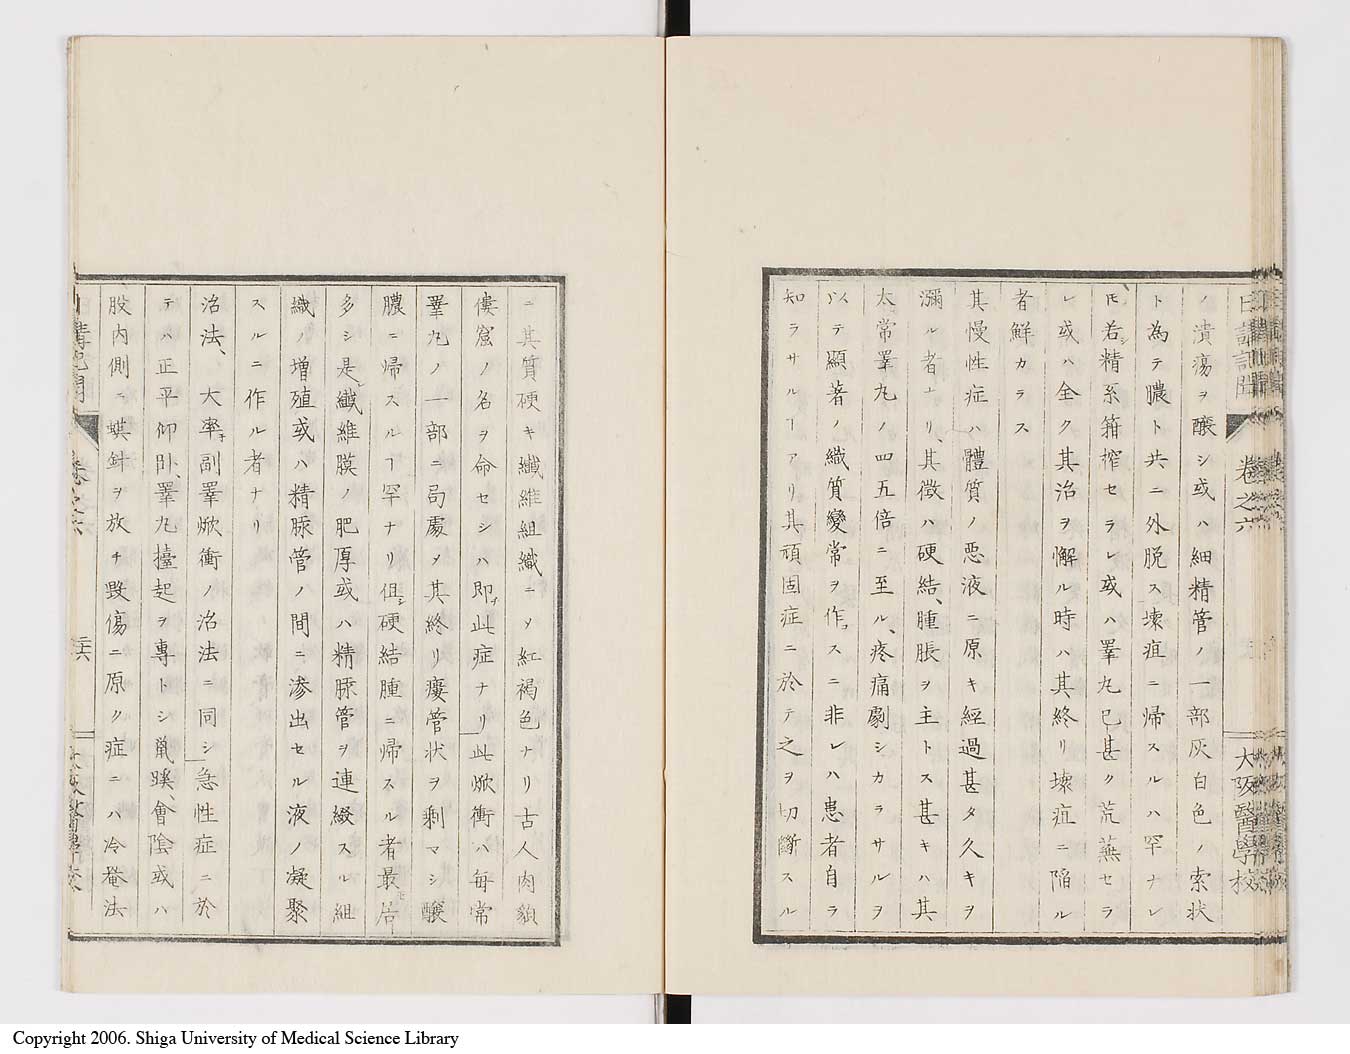 日講記聞 卷之六 大阪醫學校
ノ潰瘍ヲ醸シ或ハ細精管ノ一部灰白色ノ索状
ト為テ膿ト共ニ外脱ス壊疽ニ帰スルハ罕ナレ
𪜈若シ精系箝搾セラレ或ハ睪丸已甚ク荒蕪セラ
レ或ハ全ク其治ヲ懈ル時ハ其終リ壊疽ニ陥ル
者鮮カラス
其慢性症ハ體質ノ悪液ニ原キ經過甚タ久キヲ
瀰ル者ナリ、其徴ハ硬結、腫脹ヲ主トス甚キハ其
大常睪丸ノ四五倍ニ至ル、疼痛劇シカラサルヲ
以テ顯著ノ織質變常ヲ作スニ非レハ患者自ラ
知ラサルヿアリ其頑固症ニ於テ之ヲ切斷スル
ニ其質硬キ纖維組織ニメ紅褐色ナリ古人肉額
僂窟ノ名ヲ命セシハ即チ此症ナリ此焮衝ハ毎常
睪丸ノ一部ニ局處メ其終リ瘻管状ヲ剰マシ醸
膿ニ帰スルヿ罕ナリ但シ硬結腫ニ帰スル者最モ居
多シ是レ纖維膜ノ肥厚或ハ精脲管ヲ連綴スル組
織ノ増殖或ハ精脲管ノ間ニ滲出セル液ノ凝聚
スルニ作ル者ナリ
治法、大率子副睪焮衝ノ治法ニ同シ急性症ニ於
テハ正平仰卧、睪丸擡起ヲ專トシ鼠蹊、會陰或ハ
股内側ニ蜞針ヲ放チ毀傷ニ原ク症ニハ冷罨法
日講記聞 卷之六 三六 大阪醫學校